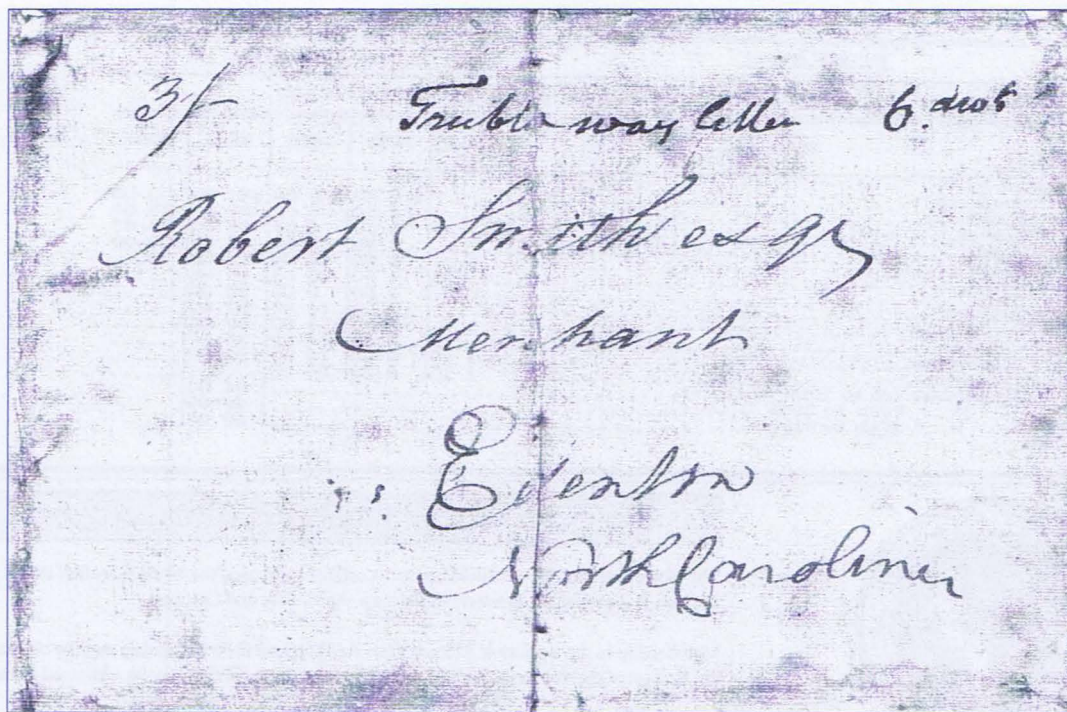 3/- Truble way letter 6. dwt
Robert Smith esqr
Merchant
Edenton
North Carolina